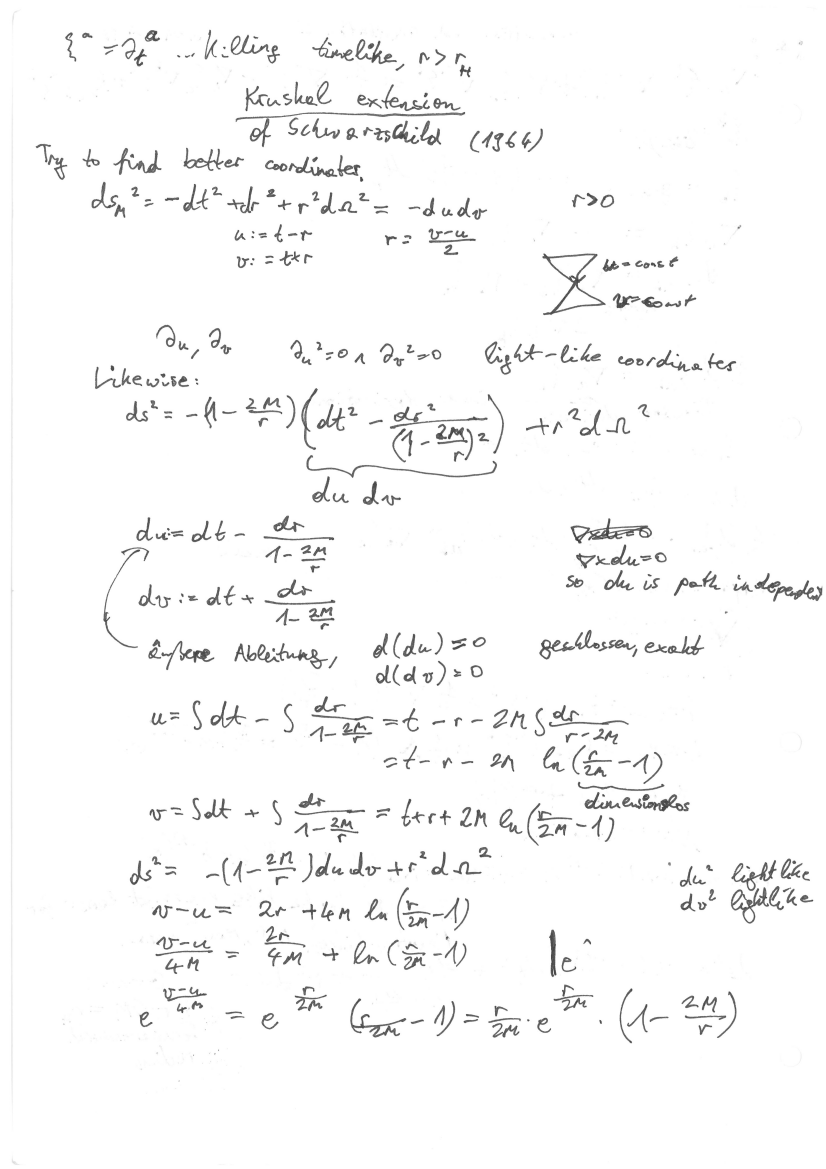 ξᵃ = ∂ₜᵃ ... Killing timelike, r > r_H
Kruskal extension
of Schwarzschild (1964)
Try to find better coordinates.
ds_M² = -dt² + dr² + r²dΩ² = -du dv r>0
u := t-r r = (v-u)/2
v := t+r
u = const
v = const
∂u, ∂v ∂u² = 0 ∧ ∂v² = 0 light-like coordinates
Likewise:
ds² = -(1 - 2M/r)(dt² - dr²/(1 - 2M/r)²) + r²dΩ²
du dv
du := dt - dr/(1 - 2M/r)
∇×du=0
dv := dt + dr/(1 - 2M/r) so du is path independen
äußere Ableitung, d(du) = 0 geschlossen, exakt
d(dv) = 0
u = ∫dt - ∫ dr/(1 - 2M/r) = t - r - 2M ∫ dr/(r-2M)
= t - r - 2M ln(r/2M - 1)
dimensionslos
v = ∫dt + ∫ dr/(1 - 2M/r) = t + r + 2M ln(r/2M - 1)
ds² = -(1 - 2M/r) du dv + r²dΩ² du² lightlike
dv² lightlike
v-u = 2r + 4M ln(r/2M - 1)
(v-u)/4M = 2r/4M + ln(r/2M - 1) | e^
e^((v-u)/4M) = e^(r/2M) (r/2M - 1) = r/2M · e^(r/2M) · (1 - 2M/r)